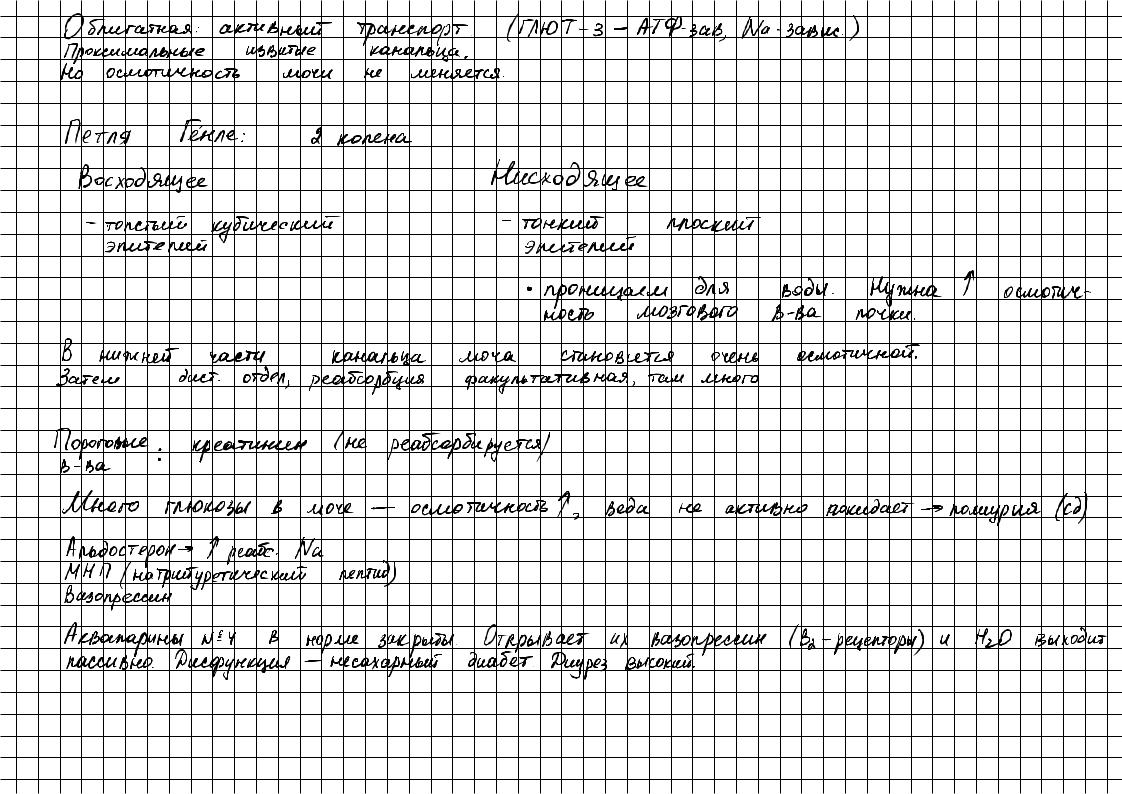 Облигатная: активный транспорт (ГЛЮТ-3 – АТФ-зав, Na-завис.)
Проксимальные извитые канальца.
Но осмотичность мочи не меняется.
Петля Генле: 2 колена
Восходящее Нисходящее
- толстый кубический - тонкий плоский
эпителий эпителий
• проницаем для воды. Нужна ↑ осмотич-
ность мозгового в-ва почки.
В нижней части канальца моча становится очень осмотичной.
Затем дист. отдел, реабсорбция факультативная, там много
Пороговые : креатинин (не реабсорбируется)
в-ва
Много глюкозы в моче — осмотичность ↑, вода не активно покидает → полиурия (СД)
Альдостерон → ↑ реабс. Na
МНП (натрийуретический пептид)
Вазопрессин
Аквапарины №4 в норме закрыты. Открывает их вазопрессин (В2-рецепторы) и H2O выходит
пассивно. Дисфункция — несахарный диабет Диурез высокий.